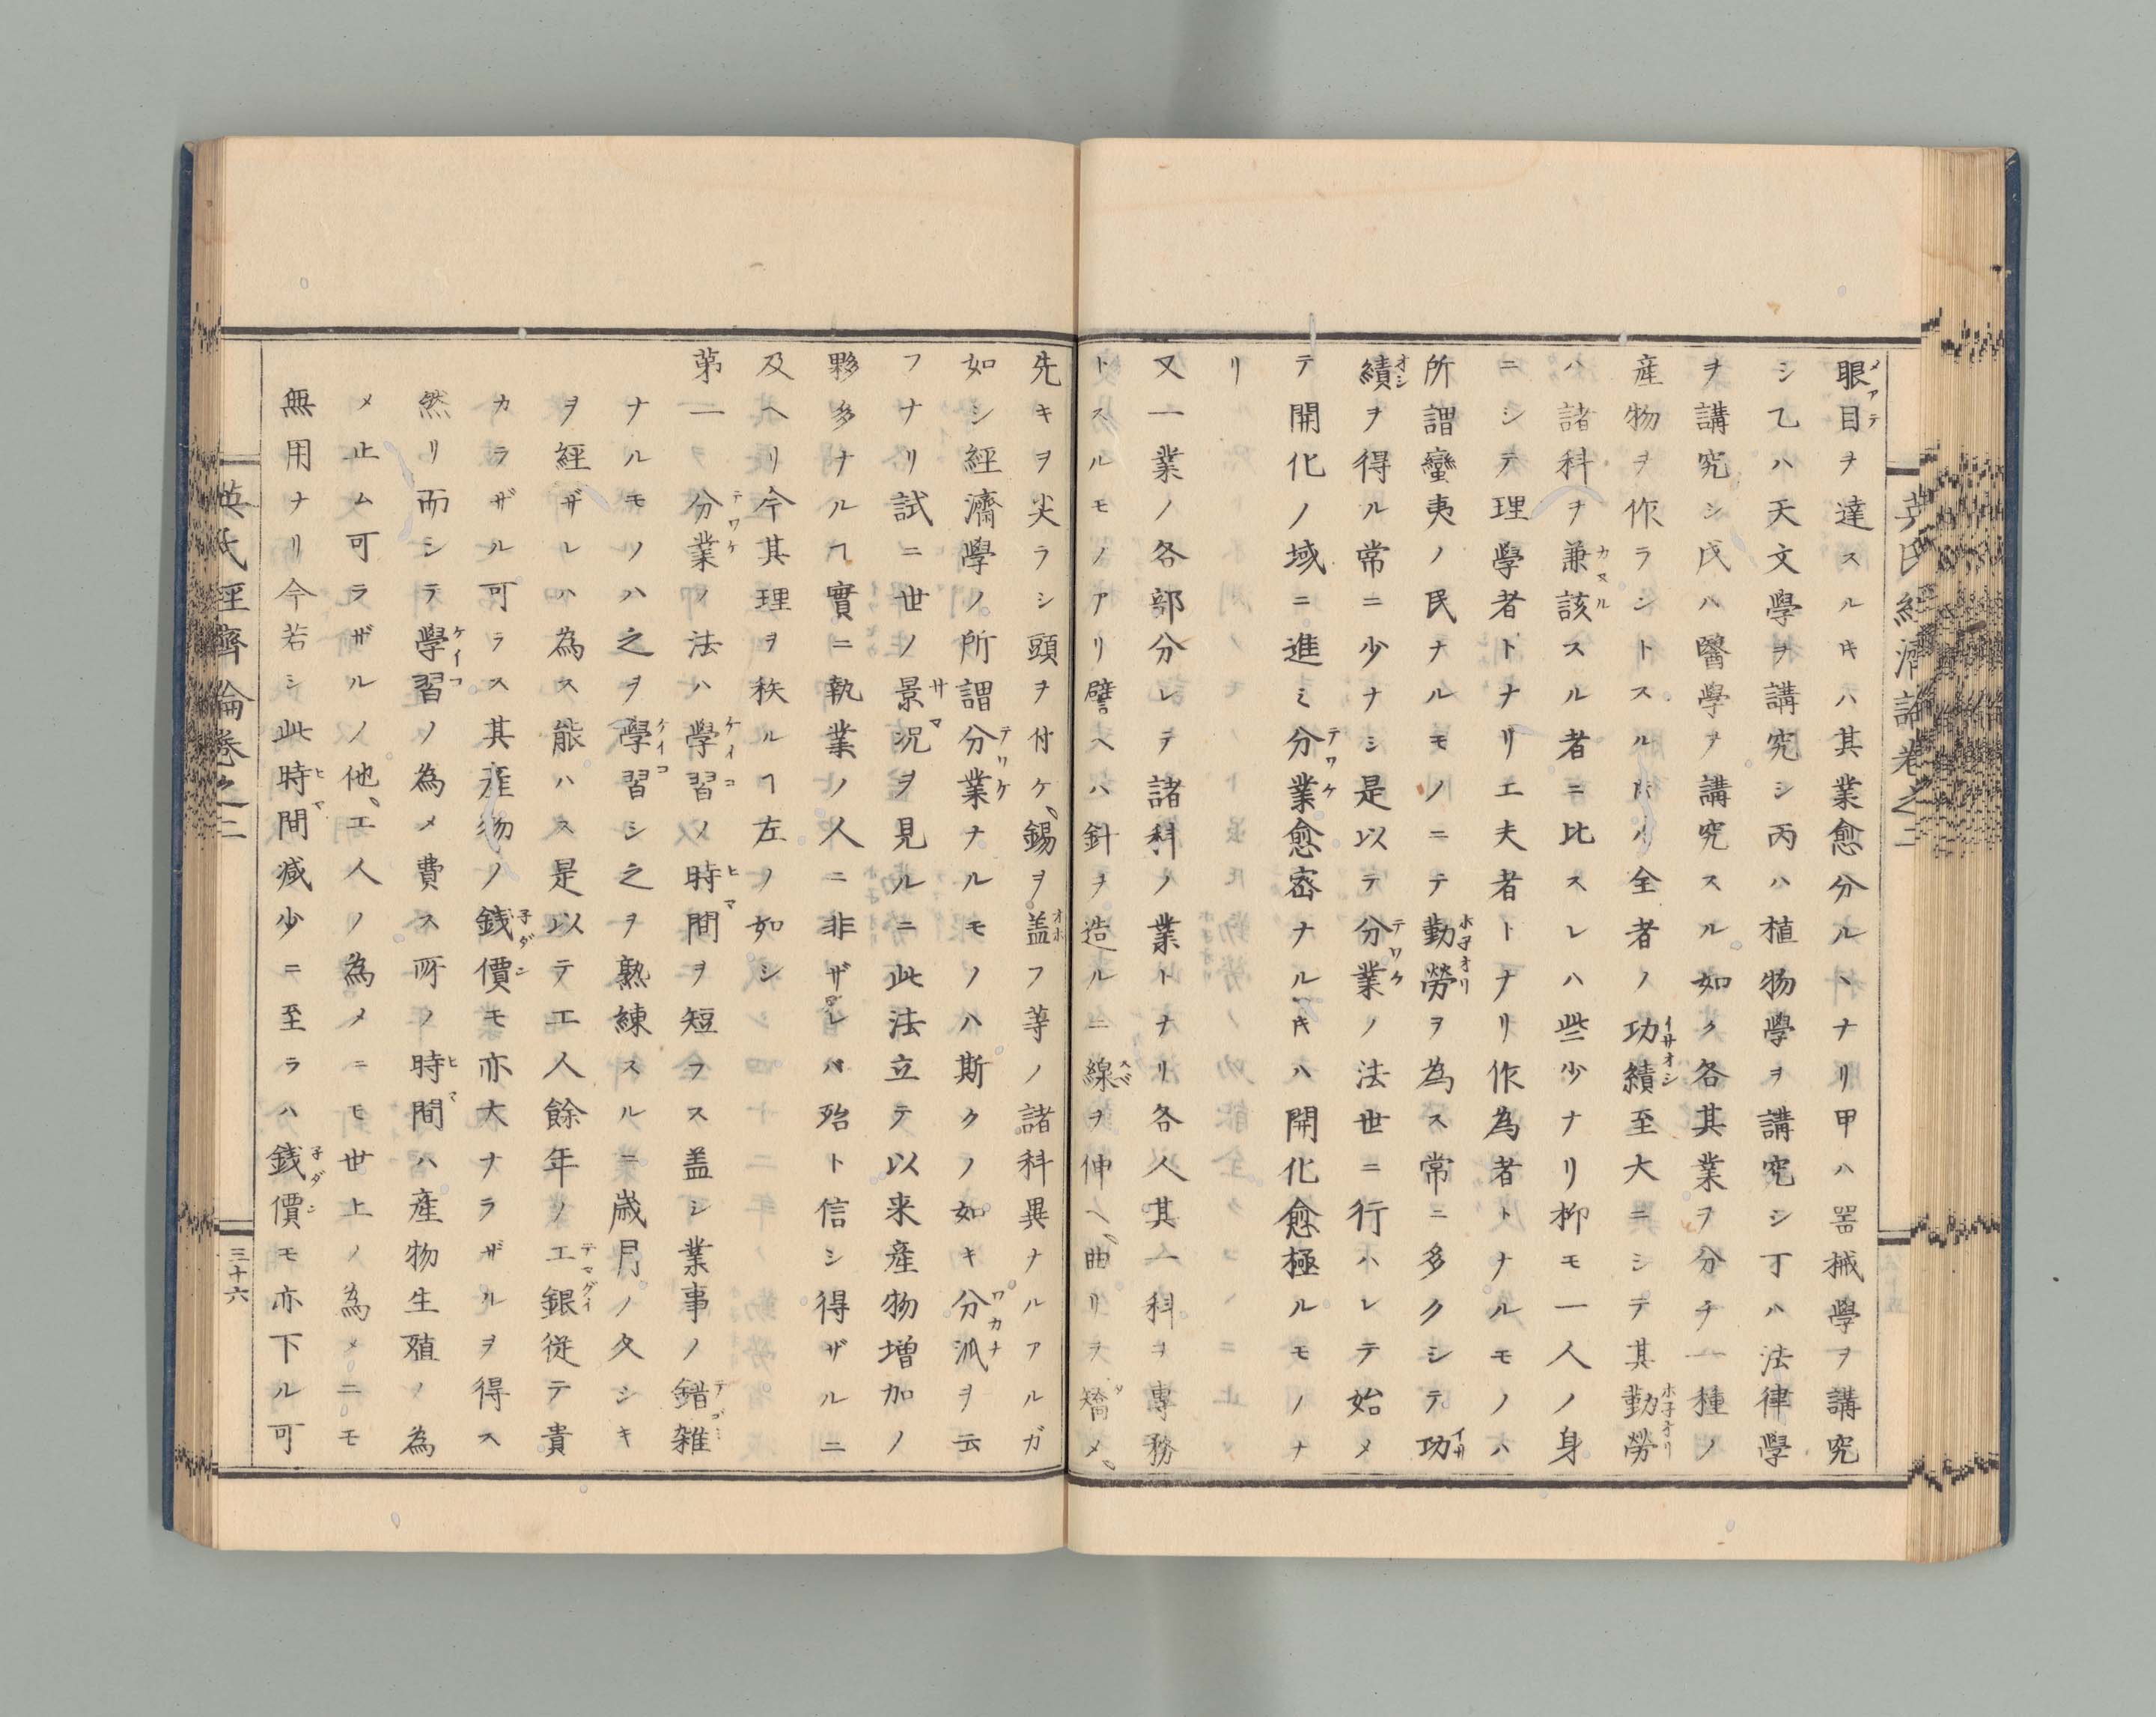 英氏經濟論卷之二
眼目ヲ達スルキハ其業愈分ルヽナリ甲ハ器械學ヲ講究
メアテ
シ乙ハ天文學ヲ講究シ丙ハ植物學ヲ講究シ丁ハ法律學
ヲ講究シ戊ハ醫學ヲ講究スル如ク各其業ヲ分チ一種ノ
産物ヲ作ラントスル𪜈ハ全者ノ功績至大ニシテ其勤勞
イサオシ
ホ子オリ
ハ諸科ヲ兼該スル者ニ比スレハ些少ナリ抑モ一人ノ身
カヌル
ニシテ理學者トナリ工夫者トナリ作為者トナルモノハ
所謂蠻夷ノ民ナルモノニテ勤勞ヲ為ス常ニ多クシテ功
ホ子オリ
イサ
績ヲ得ル常ニ少ナシ是以テ分業ノ法世ニ行ハレテ始メ
オシ
テワケ
テ開化ノ域ニ進ミ分業愈密ナルキハ開化愈極ルモノナ
テワケ
リ
又一業ノ各部分レテ諸科ノ業トナリ各人其一科ヲ專務
トスルモノアリ譬ヘハ針ヲ造ルニ線ヲ伸ヘ曲リヲ矯メ
スベ
タ
先キヲ尖ラシ頭ヲ付ケ錫ヲ盖フ等ノ諸科異ナルアルガ
オホ
如シ經濟學ノ所謂分業ナルモノハ斯クノ如キ分派ヲ云
テワケ
ワカナ
フナリ試ニ世ノ景況ヲ見ルニ此法立テ以来産物増加ノ
サマ
夥多ナルヿ實ニ執業ノ人ニ非ザレバ殆ト信シ得ザルニ
及ヘリ今其理ヲ秩ルヿ左ノ如シ
第一 分業ノ法ハ學習ノ時間ヲ短フス盖シ業事ノ錯雑
テワケ
ケイコ
ヒマ
ナルモノハ之ヲ學習シ之ヲ熟練スルニ歳月ノ久シキ
ケイコ
ヲ經ザレハ為ス能ハス是以テ工人餘年ノ工銀従テ貴
テマダイ
カラザル可ラス其産物ノ錢價モ亦大ナラザルヲ得ス
子ダン
然リ而シテ學習ノ為メ費ス所ノ時間ハ産物生殖ノ為
ケイコ
ヒマ
メ止ム可ラザルノ他工人ノ為メニモ世上ノ為メニモ
無用ナリ今若シ此時間减少ニ至ラハ錢價モ亦下ル可
ヒマ
子ダン
英氏經濟論卷之二
三十六